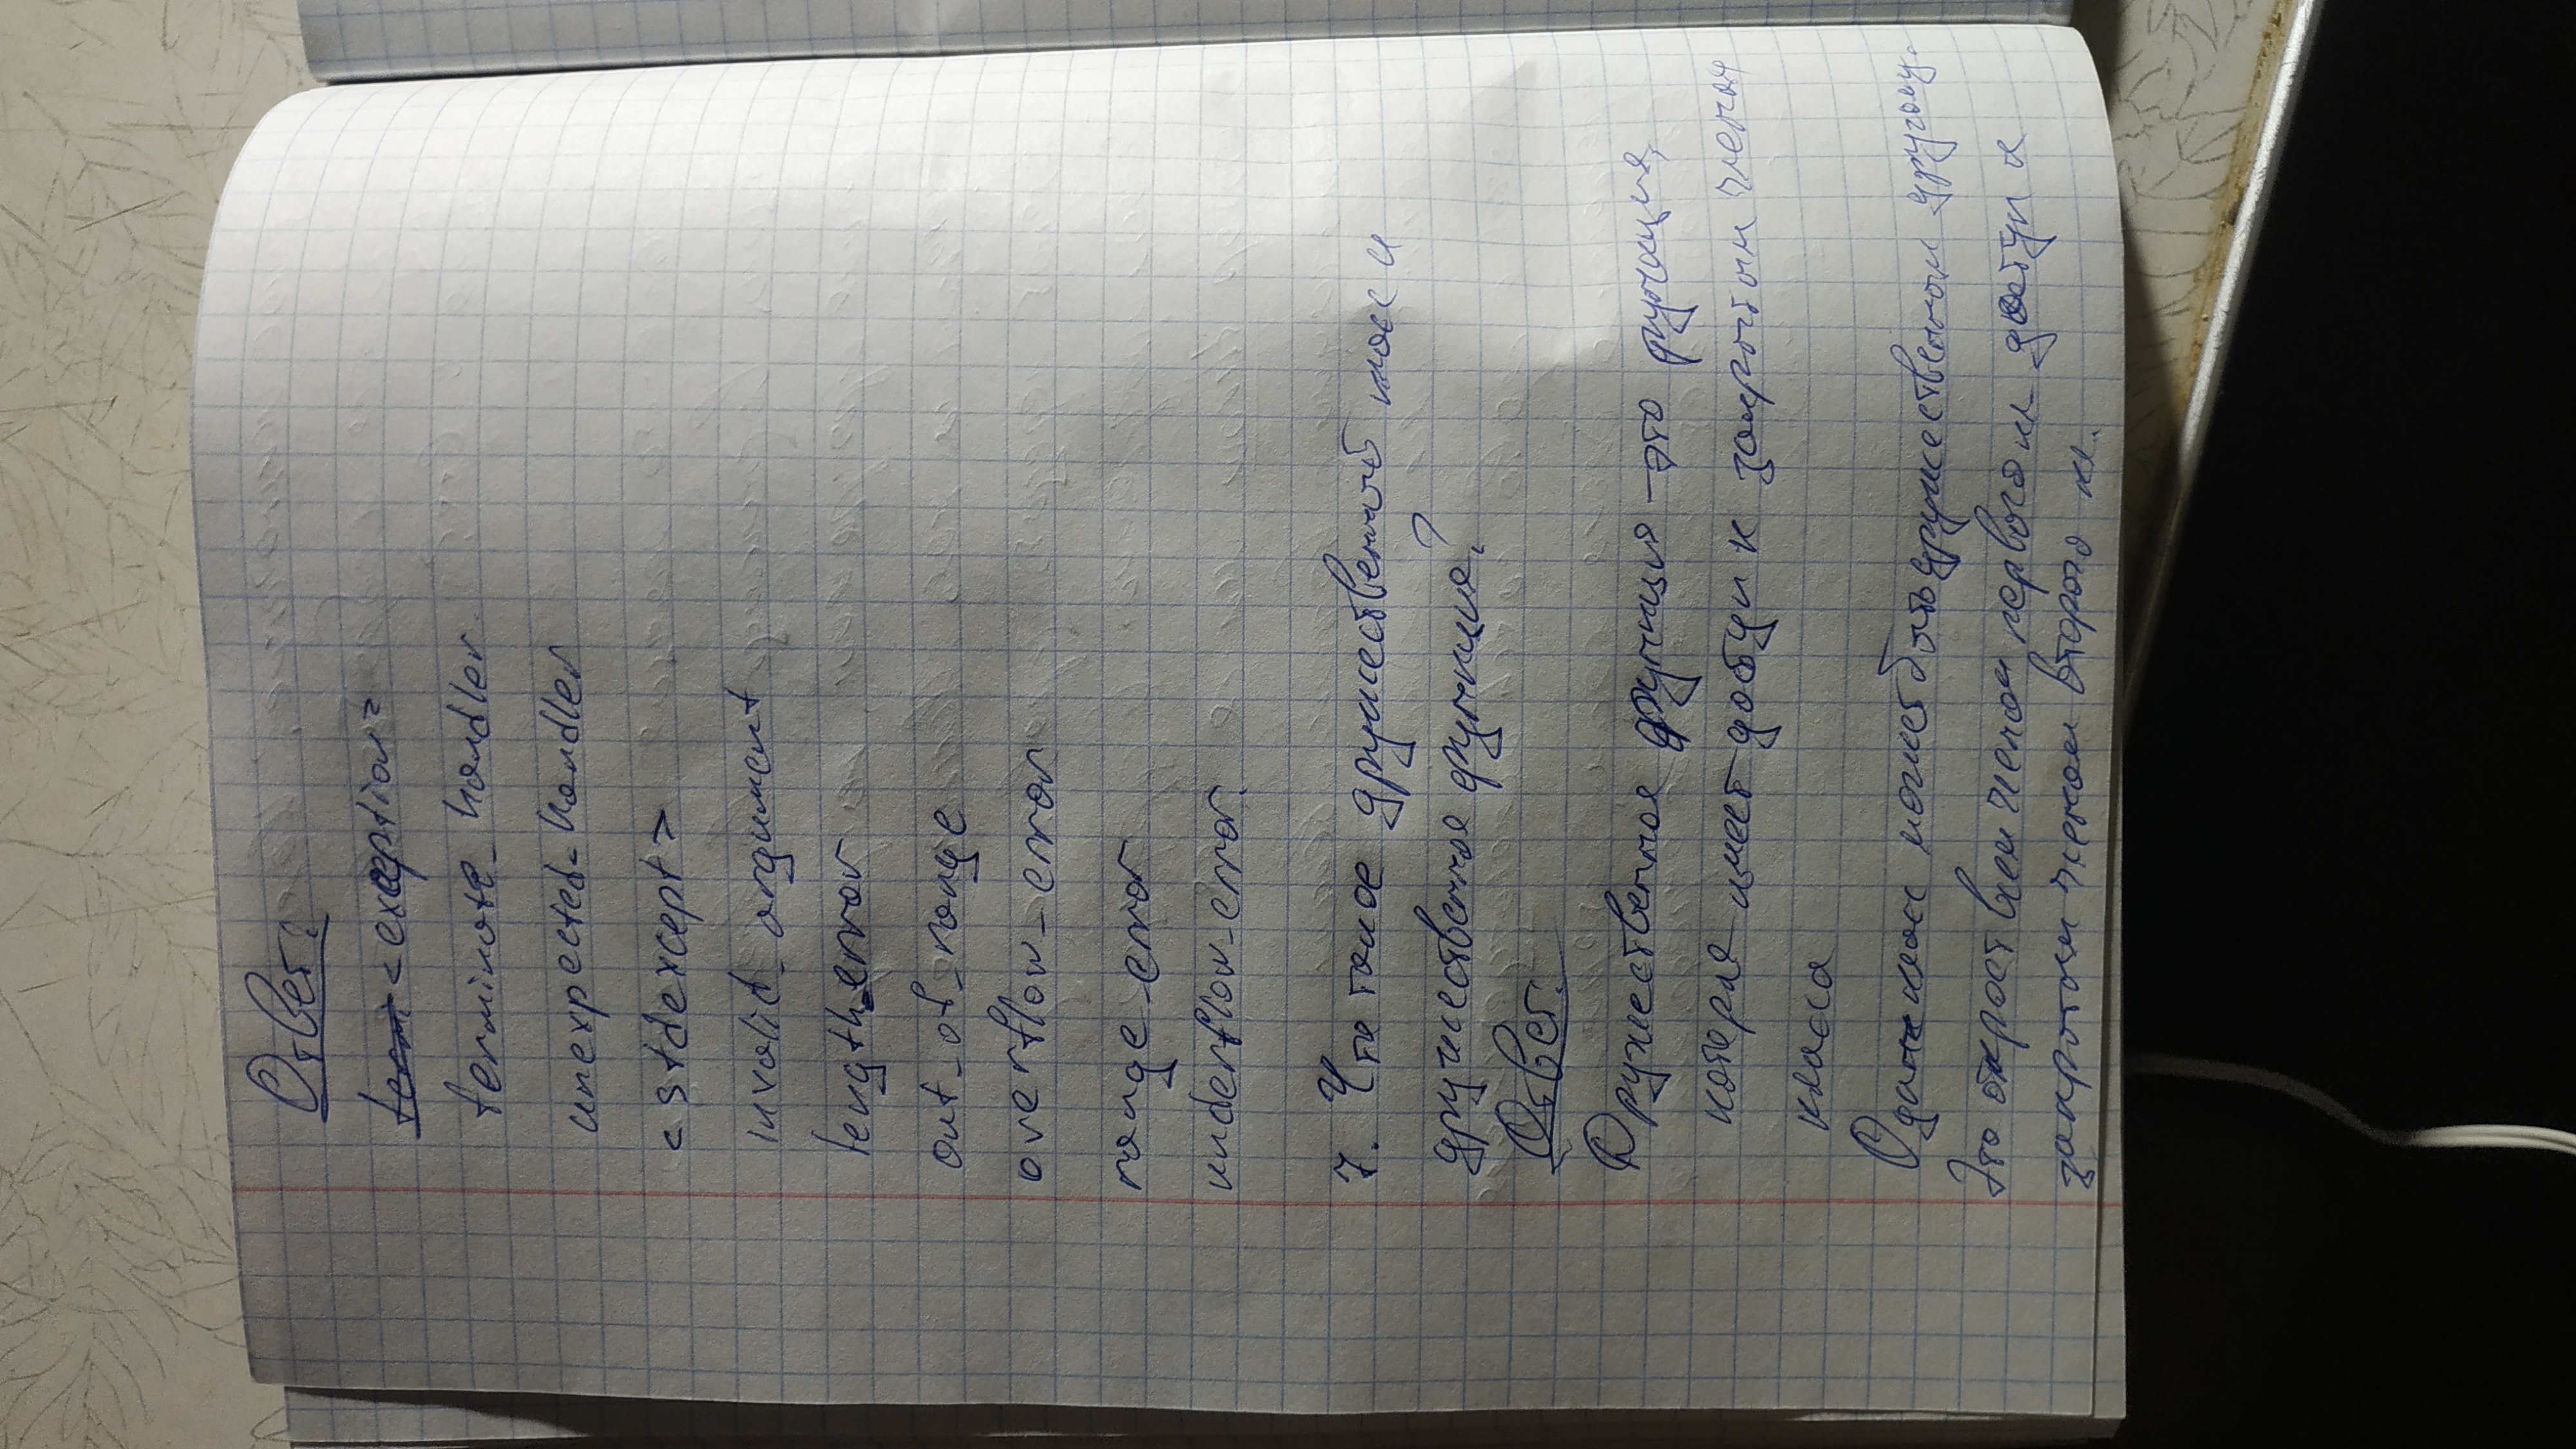 Ответ:
<exception>
terminate_handler
unexpected_handler
<stdexcept>
invalid_argument
length_error
out_of_range
overflow_error
range_error
underflow_error.
7. Что такое дружественный класс и
дружественная функция?
Ответ:
Дружественная функция – это функция,
которая имеет доступ к закрытым членам
класса
Один класс может быть дружественным другому.
Это откроет всем членам первого кл. доступ к
закрытым членам второго кл.